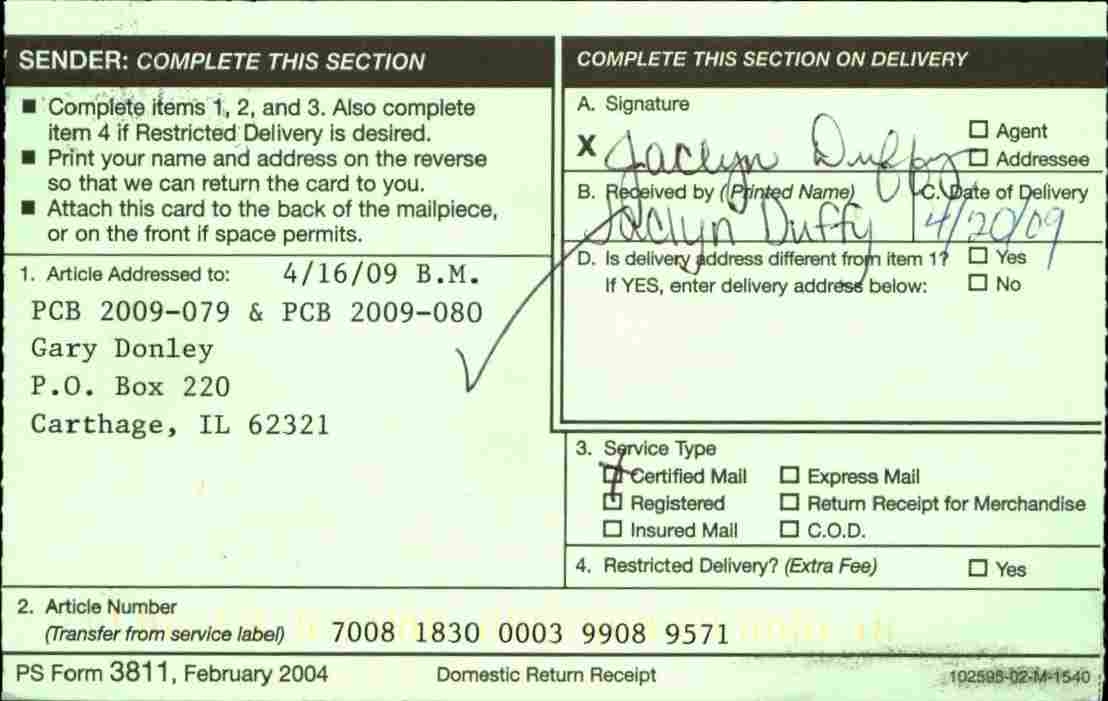 SENDER: COMPLETE THIS SECTION
■ Complete items 1, 2, and 3. Also complete
item 4 if Restricted Delivery is desired.
■ Print your name and address on the reverse
so that we can return the card to you.
■ Attach this card to the back of the mailpiece,
or on the front if space permits.
1. Article Addressed to: 4/16/09 B.M.
PCB 2009-079 & PCB 2009-080
Gary Donley
P.O. Box 220
Carthage, IL 62321
COMPLETE THIS SECTION ON DELIVERY
A. Signature
X Jaclyn Duffy
☐ Agent
☐ Addressee
B. Received by (Printed Name)
Jaclyn Duffy
C. Date of Delivery
4/20/09
D. Is delivery address different from item 1? ☐ Yes
If YES, enter delivery address below: ☐ No
3. Service Type
☒ Certified Mail ☐ Express Mail
☐ Registered ☐ Return Receipt for Merchandise
☐ Insured Mail ☐ C.O.D.
4. Restricted Delivery? (Extra Fee) ☐ Yes
2. Article Number
(Transfer from service label) 7008 1830 0003 9908 9571
PS Form 3811, February 2004 Domestic Return Receipt 102595-02-M-1540